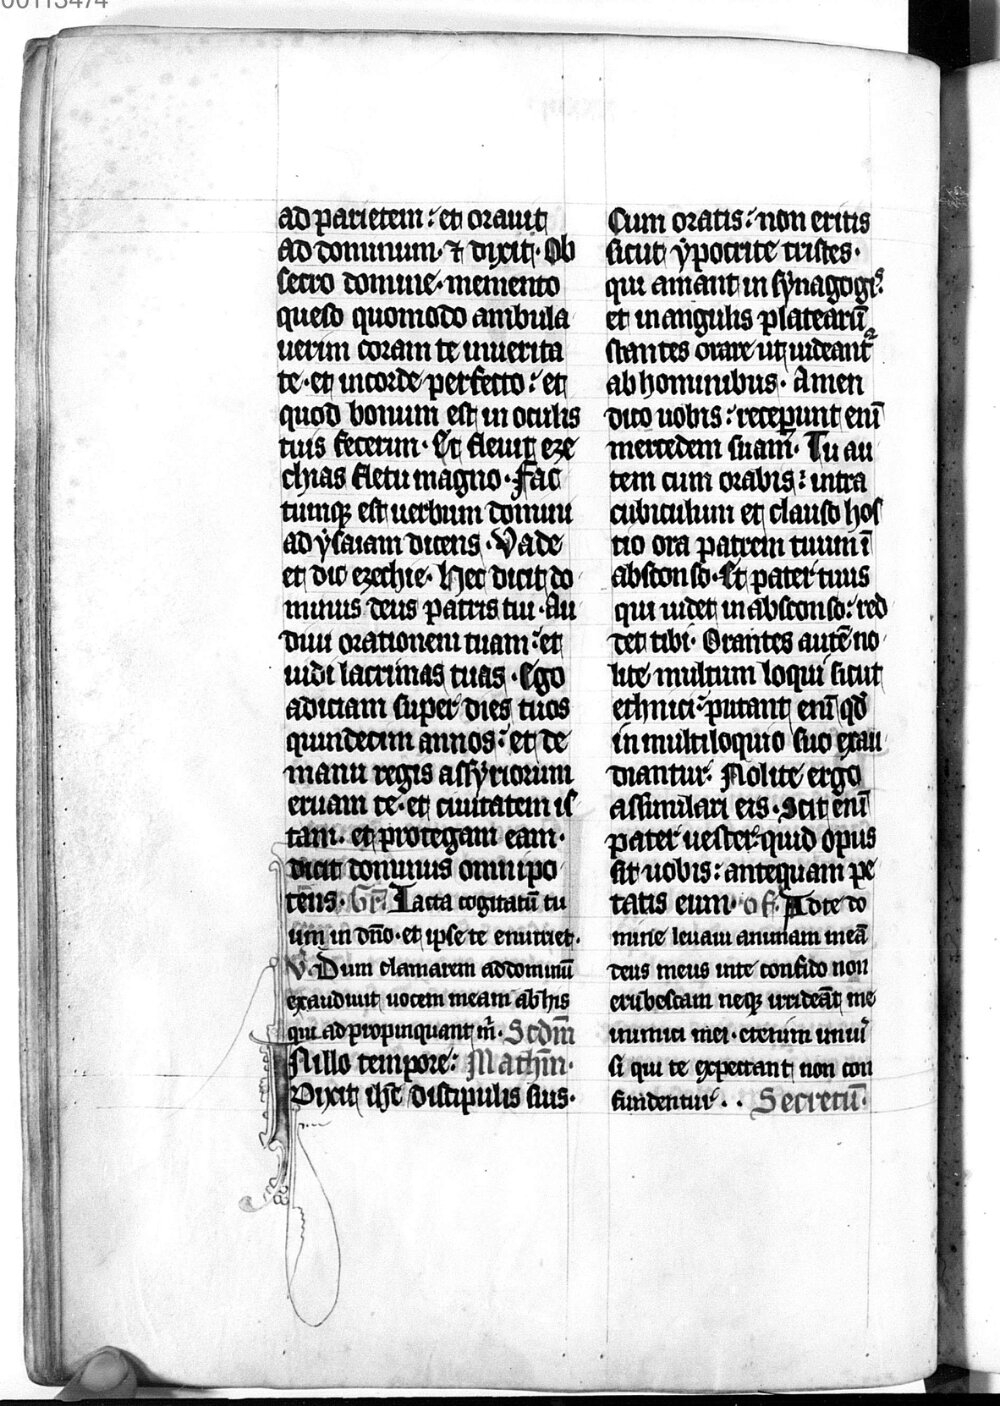 00113474
ad parietem : et orauit
ad dominum · ⁊ dixit · Ob
secro domine · memento
queso quomodo ambula
uerim coram te inuerita
te · et incorde perfecto : et
quod bonum est in oculis
tuis fecerim · Et fleuit eze
chias fletu magno · Fac
tumqꝫ est uerbum domini
ad ysaiam dicens · Vade
et dic ezechie · Hec dicit do
minus deus patris tui · Au
diui orationem tuam : et
uidi lacrimas tuas · Ego
adiciam super dies tuos
quindecim annos : et de
manu regis assyriorum
eruam te · et ciuitatem is
tam · et protegam eam ·
dicit dominus omnipo
tēns · Gr̄ · Iacta cogitatū tu
um in dn̄o · et ipse te enutriet ·
V · Dum clamarem addominū
exaudiuit uocem meam abhis
qui adpropinquant m̄ · Scdm̄
Nillo tempore : Mathm̄ ·
Dixit ihc̄ discipulis suis ·
Cum oratis : non eritis
sicut ypocrite tristes ·
qui amant in synagogis :
et in angulis platearū
stantes orare ut uideantꝛ
ab hominibus · Amen
dico uobis : receperunt enī
mercedem suam · Tu au
tem cum orabis : intra
cubiculum et clauso hos
tio ora patrem tuum ī
absconso · Et pater tuus
qui uidet in absconso : red
det tibi · Orantes autē no
lite multum loqui sicut
ethnici : putant enī qd̄
in multiloquio suo exau
diantur · Nolite ergo
assimilari eis · Scit enī
pater uester : quid opus
sit uobis : antequam pe
tatis eum · of · Ad te do
mine leuaui animam meā
deus meus inte confido non
erubescam neqꝫ irrideāt me
inimici mei · etenim uniu̓
si qui te expectant non con
fundentur · · Secretū ·